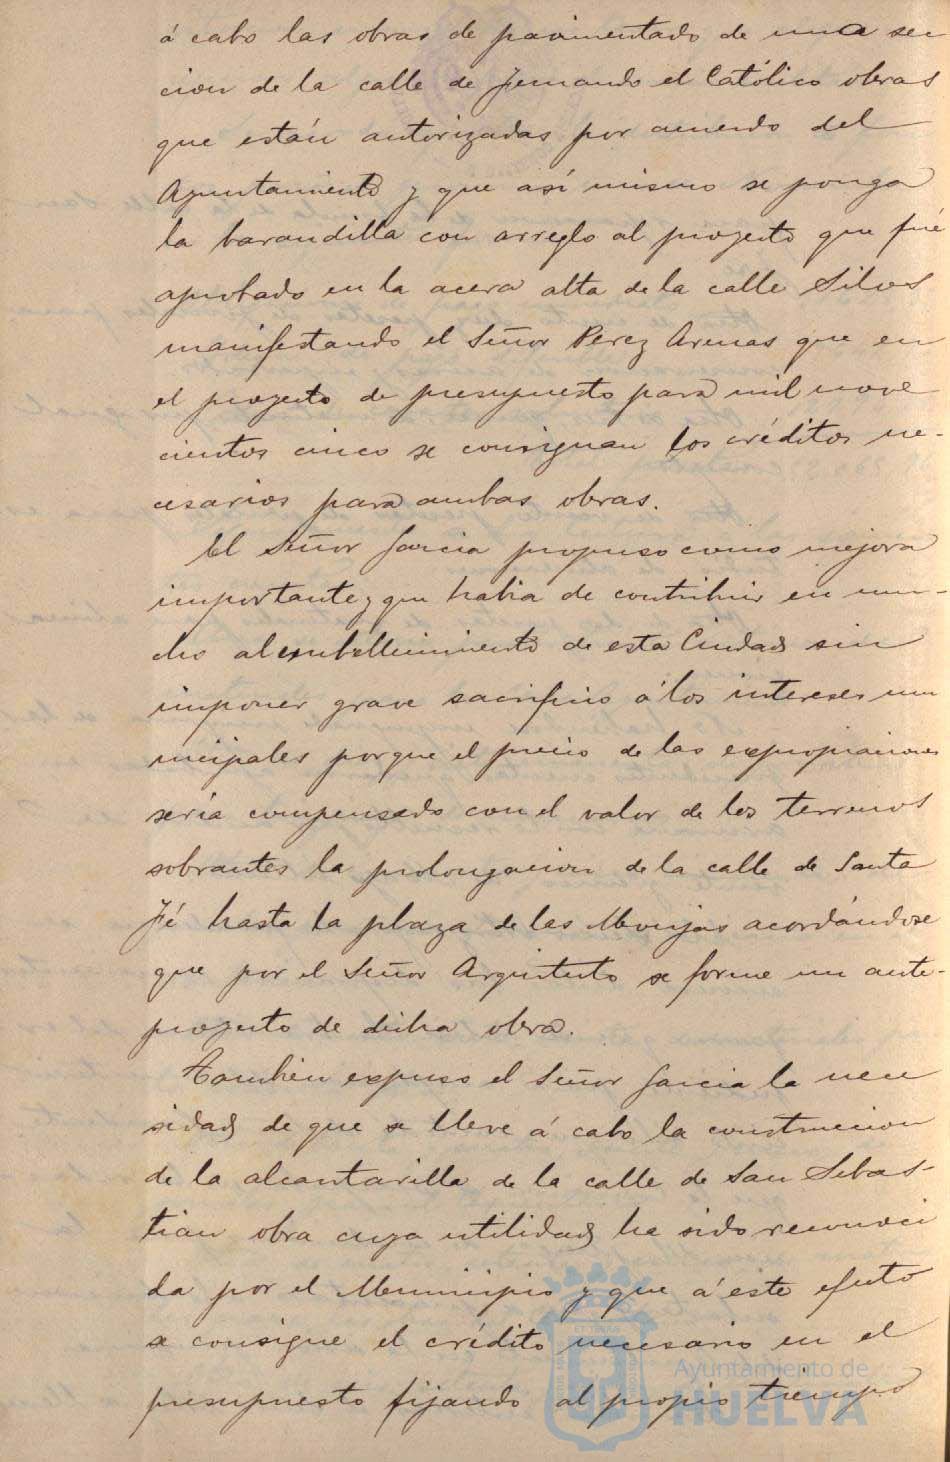 á cabo las obras de pavimentado de una sec
cion de la calle de Fernando el Católico obras
que están autorizadas por acuerdo del
Ayuntamiento y que así mismo se ponga
la barandilla con arreglo al proyecto que fué
aprobado en la acera alta de la calle Silos
manifestando el Señor Perez Arenas que en
el proyecto de presupuesto para mil nove
cientos cinco se consignan los créditos ne-
cesarios para ambas obras.
El Señor Garcia propuso como mejora
importante y que habia de contribuir en mu-
cho al embellecimiento de esta Ciudad sin
imponer grave sacrificio á los intereses mu
nicipales porque el precio de las expropiaciones
seria compensado con el valor de los terrenos
sobrantes la prolongacion de la calle de Santa
Fé hasta la plaza de las Monjas acordándose
que por el Señor Arquitecto se forme un ante-
proyecto de dicha obra.
Tambien expuso el Señor Garcia la nece
sidad de que se lleve á cabo la construccion
de la alcantarilla de la calle de San Sebas-
tian obra cuya utilidad ha sido reconoci
da por el Municipio y que á este efecto
se consigne el crédito necesario en el
presupuesto fijando al propio tiempo
Ayuntamiento de
HUELVA